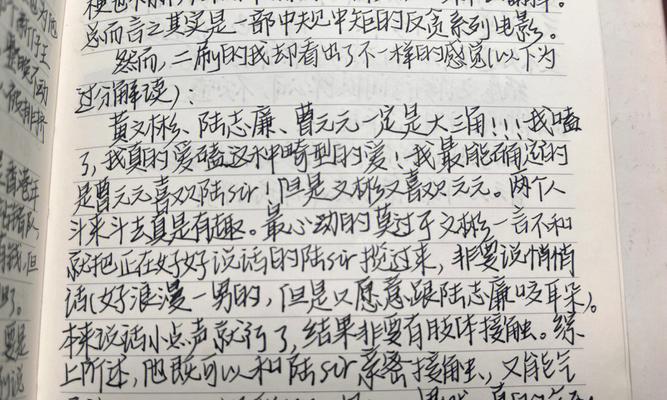 梗也不
总而言之其实是一部中规中矩的反贪系列电影。
然而,二刷的我却看出了不一样的感觉(以下为
过分解读):
黄文彬、陆志廉、曹元元一定是大三角!!!我嗑
了,我真的爱嗑这种畸型的爱!我最能确定的
是曹元元喜欢陆sir!但是文彬又喜欢元元。两个人
斗来斗去真是有趣。最心动的莫过于文彬一言不和
就把正在好好说话的陆sir揽过来,非要说悄悄
话(好浪漫一男的,但是只愿意跟陆志廉咬耳朵)。
本来说话小点声就行了,结果非要有肢体接触。综
上所述,他既可以和陆sir亲密接触,又能气